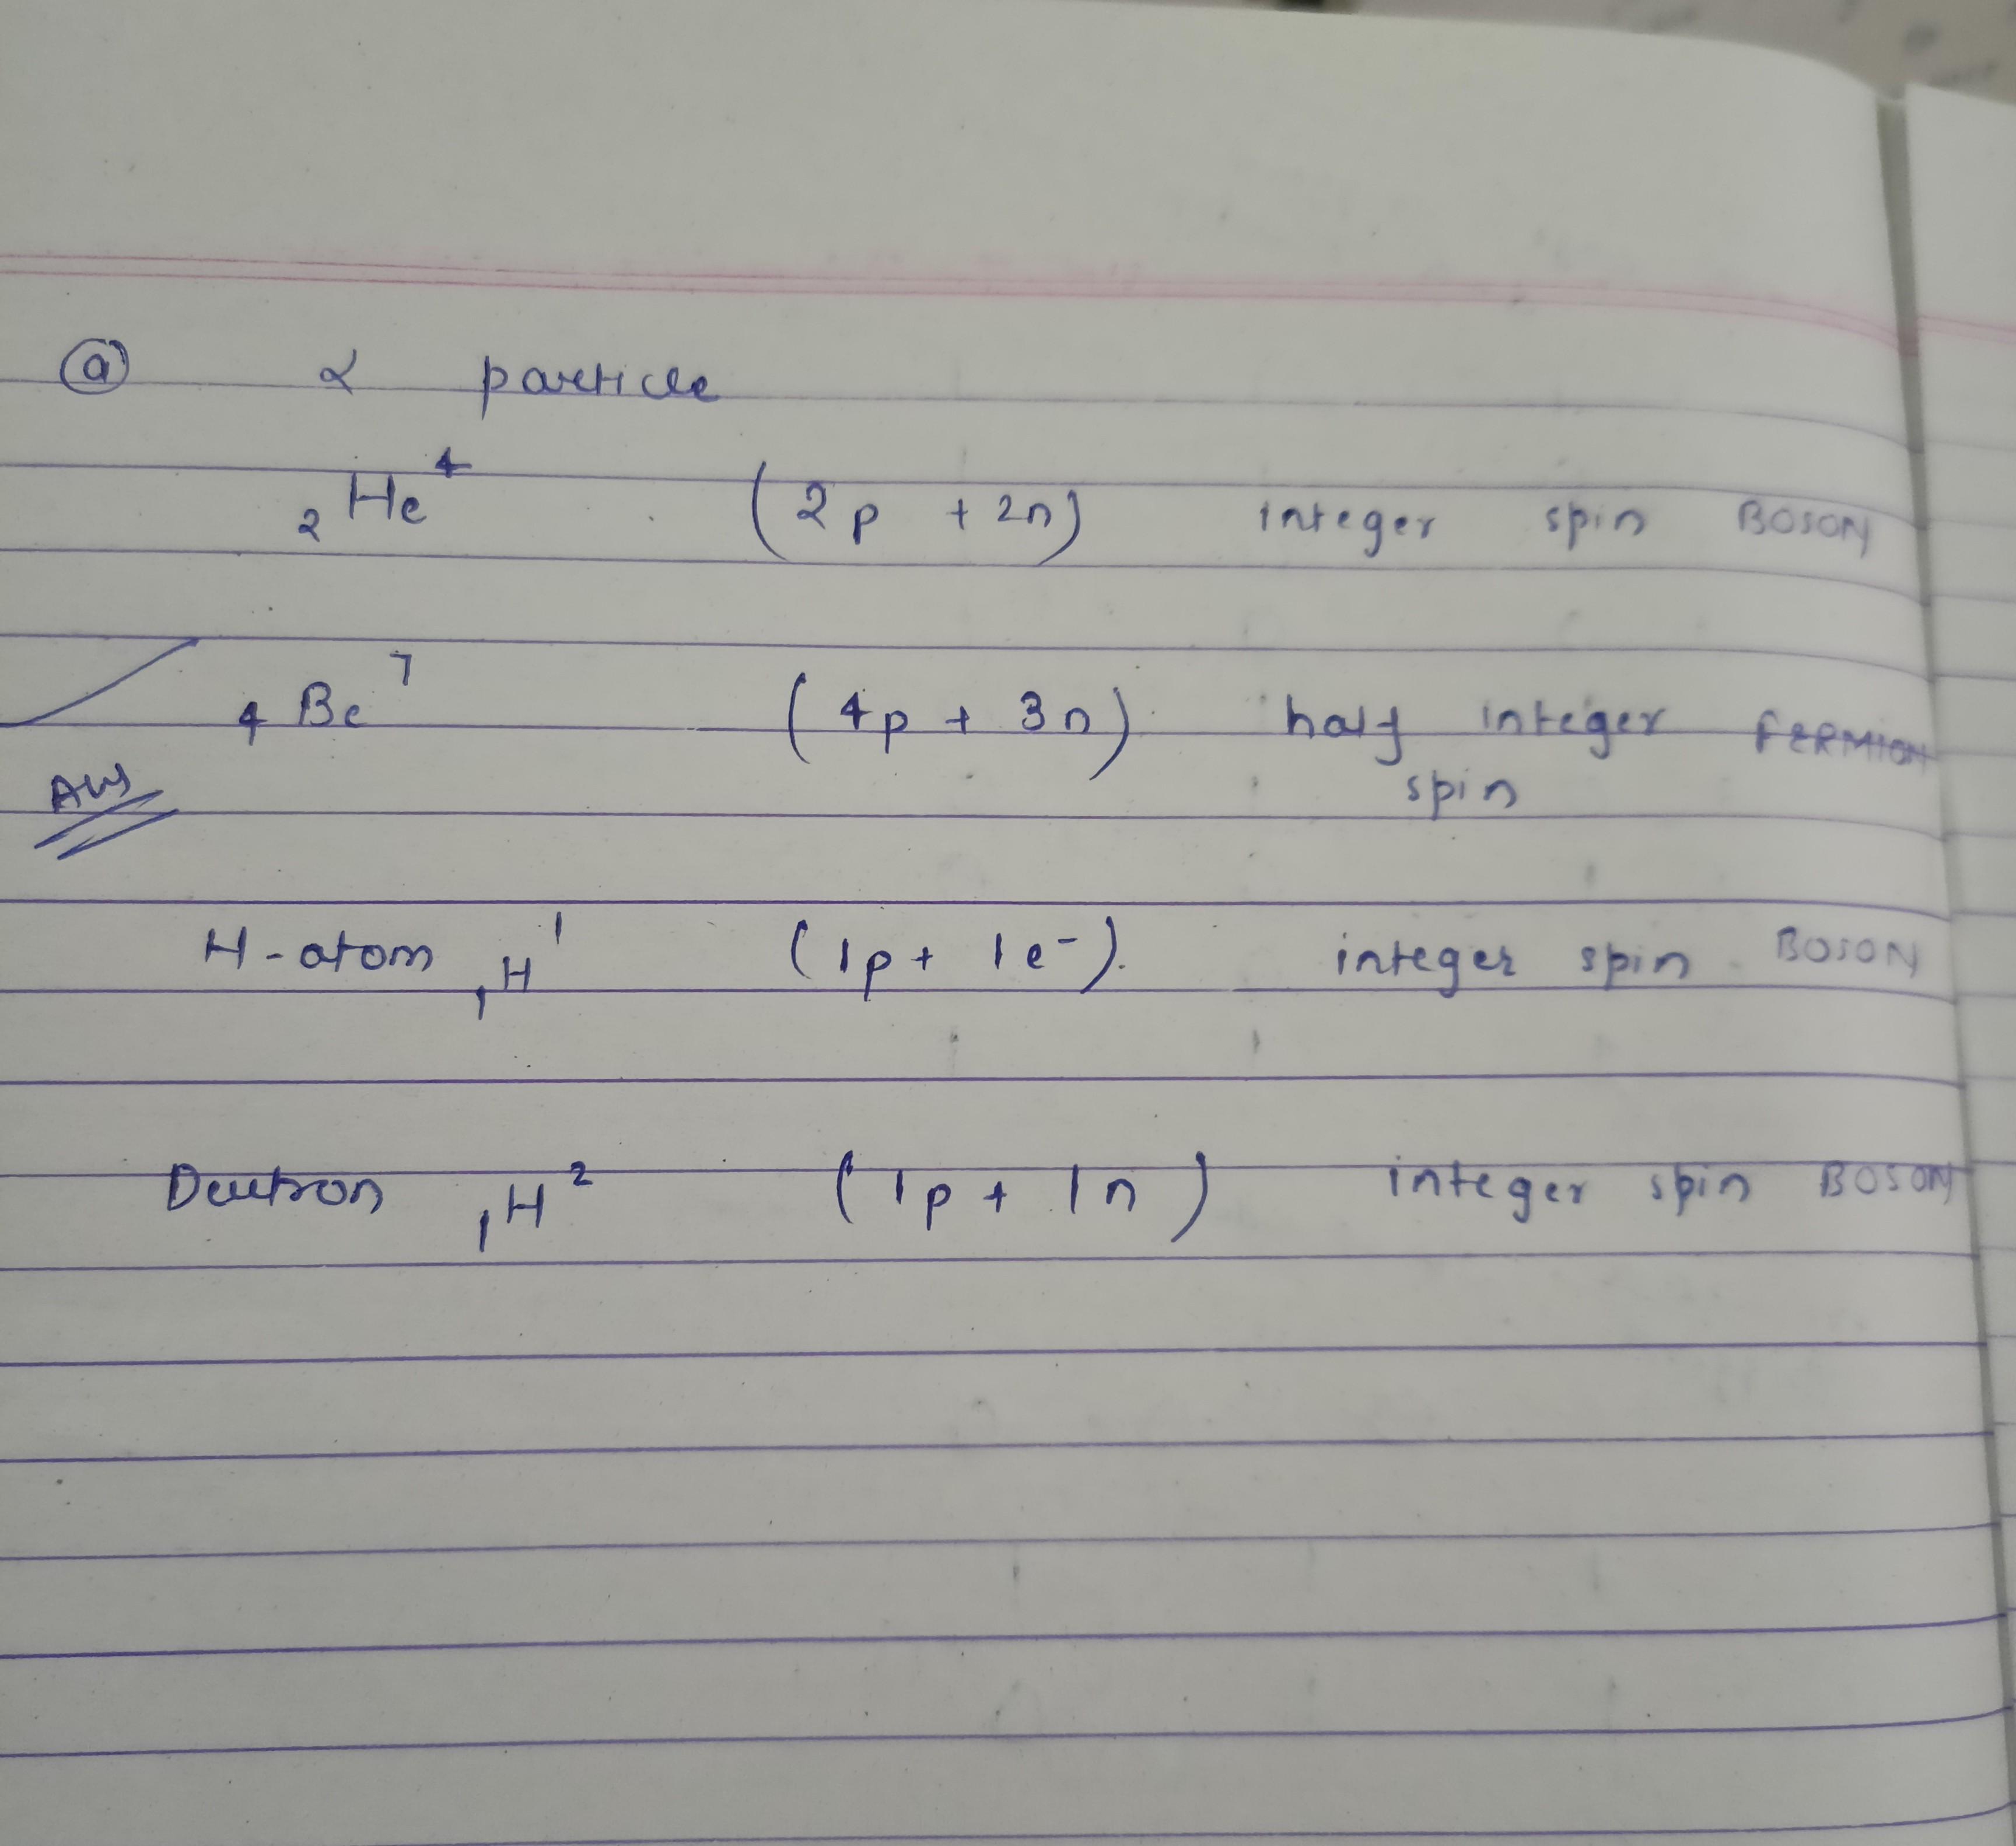 ⓐ α particle
₂He⁴ (2p + 2n) integer spin BOSON
₄Be⁷ (4p + 3n) half integer FERMION
spin
Ans
H-atom ₁H¹ (1p + 1e⁻). integer spin BOSON
Deutron ₁H² (1p + 1n) integer spin BOSON